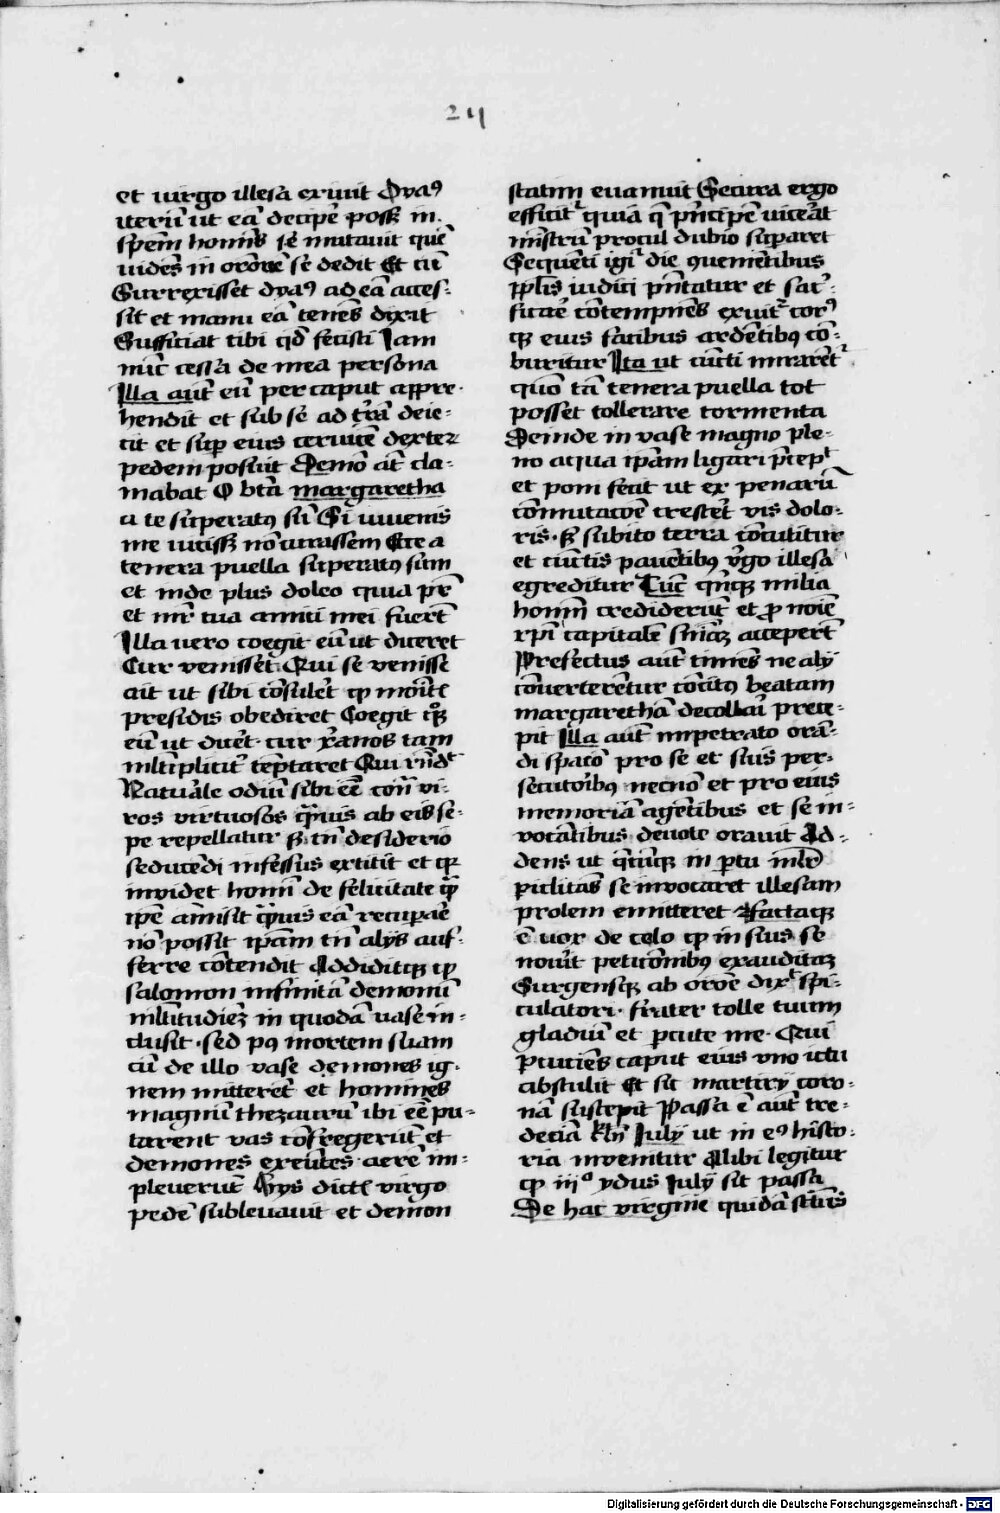 211
et uirgo illesa exiuit Dya9
iteru᷒ ut ea᷒ decipe᷒ poss᷒ in
spem᷒ homi᷒s se mutauit que᷒
uidens᷒ in oro᷒ne se dedit Et cu᷒
Surrexisset dya9 ad ea᷒ acces-
sit et manu ea᷒ tenes᷒ dixit
Sufficiat tibi qd᷒ fecisti Iam
nu᷒c cessa de mea persona
Illa aut᷒ eu᷒ per caput appre-
hendit et sub se ad t᷒ra᷒ deie-
cit et sup᷒ eius ceruice᷒ dexterꝫ
pedem posuit Demo᷒ at᷒ cla-
mabat O bt᷒a margaretha
a te superatꝰ su᷒ Si iuuenis
me uiciss᷒ no᷒ curassem Ecce a
tenera puella superatꝰ sum
et inde plus doleo quia pr᷒
et mr᷒ tua amici mei fuert᷒
Illa uero coegit eu᷒ ut diceret
Cur venisset᷒ Qui se venisse
ait ut sibi co᷒sulet᷒ ꝙ moni᷒t᷒
presidis obediret Coegit qꝫ
eu᷒ ut dicet᷒ cur xr᷒anos tam
ml᷒tiplicit᷒ te᷒ptaret Qui rn᷒dt᷒
Natura᷒le odiu᷒ sibi ee᷒ cont᷒ vi-
ros virtuosos qm᷒uis ab eis se-
pe repellatur sꝫ tn᷒ desiderio
seduce᷒di infessus extitit et qꝛ
inuidet homi᷒ de felicitate qm᷒
ipe᷒ amisit qm᷒uis ea᷒ recupar᷒e
no᷒ possit ipa᷒m tn᷒ alijs auf-
ferre co᷒tendit Addiditqꝫ ꝙ
salomon infinita᷒ demoniu᷒
ml᷒titudieꝫ in quoda᷒ uase in-
clusit sed pꝰ mortem suam
cu᷒ de illo vase demones ig-
nem mitteret᷒ et homines
magnu᷒ thezauru᷒ ibi ee᷒ pu-
tarent vas co᷒fregeru᷒t et
demones exeu᷒tes aere᷒ im-
pleueru᷒t Hijs dict᷒ virgo
pede᷒ subleuauit et demon
statim euanuit Secura ergo
efficit᷒ quia q᷒ pn᷒cipe᷒ uicerat᷒
minist᷒ru᷒ procul dubio superaret
Sequen᷒ti igi᷒ die ꝯuenie᷒tibus
pplis᷒ iudici pn᷒tatur et sac᷒-
ficare᷒ co᷒tempnes᷒ exuit᷒ corꝰ
qꝫ eius facibus arde᷒tibꝰ co᷒-
buritur Ita ut cu᷒cti mirare᷒t᷒
quo᷒ ta᷒ tenera puella tot
posset tollerare tormenta
Deinde in vase magno ple-
no aqua ipa᷒m ligari p᷒cep᷒t
et poni fecit ut ex penaru᷒
co᷒mutaco᷒e crescet᷒ vis dolo-
ris sꝫ subito terra co᷒cutitur
et cu᷒ctis paue᷒tibꝰ v᷒go illesa
egreditur Tu᷒c qn᷒qꝫ milia
homi᷒m crediderut᷒ et ꝓ noi᷒e
xpi᷒ capitale᷒ sn᷒iaꝫ acceper᷒t
Prefectus aut᷒ times᷒ ne alij
co᷒uertere᷒tur co᷒citꝰ beatam
margaretha᷒ decollari prece-
pit Illa aut᷒ impetrato ora᷒-
di spacio᷒ pro se et suis per-
secutoribꝰ necno᷒ et pro eius
memoria᷒ age᷒tibus et se in-
voca᷒tibus deuote orauit Ad-
dens ut qu᷒cu᷒qꝫ in ptu᷒ mulr᷒
piclitas᷒ se inuocaret illesam
prolem emitteret Factaqꝫ
e᷒ uox de celo ꝙ in suis se
nouit᷒ petico᷒nibꝰ exauditaꝫ
Surgensqꝫ ab oro᷒e dixt᷒ spi-
culatori frater tolle tuum
gladiu᷒ et pcute᷒ me Qui
pcucies᷒ caput eius vno ictu
abstulit Et sic martirij coro-
na᷒ suscepit Passa e᷒ aut᷒ tre-
decia᷒ kln᷒ Iulij ut in eꝰ histo-
ria inuenitur Alibi legitur
ꝙ iijº ydus Iulij sit passa
De hac virgine quida᷒ sct᷒us
Digitalisierung gefördert durch die Deutsche Forschungsgemeinschaft - DFG